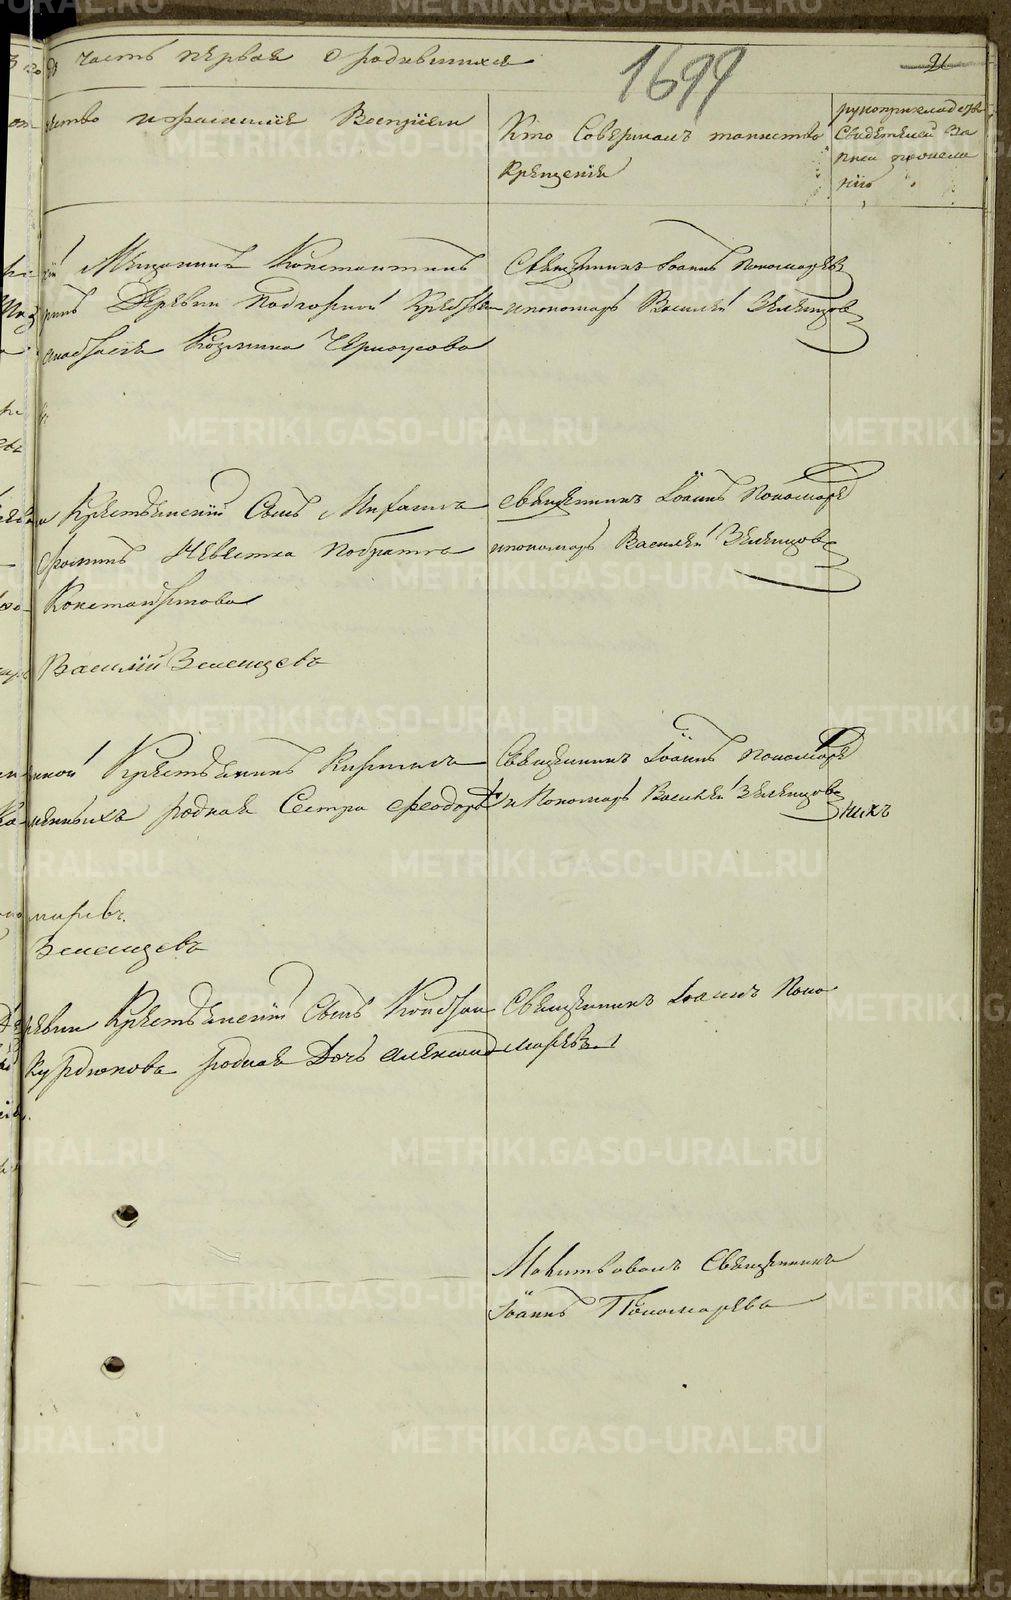 часть первая О родившихся
1699
21
ство и фамилiе Воспрiем
Кто Совершалъ таинство
Крещенiя
рукоприкладств
Свидетелей за
писи по жела
нiю
Мещанинъ Константинъ
Деревни Подгорной Крестьян
Анастасiя Козмина Черноусова
Священникъ Iоаннъ Пономаревъ
и пономарь Василей Зеленцовъ
Крестьянскiй Сынъ Михаилъ
Невестка
Константинова
Священникъ Iоаннъ Пономаре
и пономарь Василей Зеленцовъ
Василiй Зеленцовъ
Крестьянинъ Кирилъ
родная Сестра Феодор
Священникъ Iоаннъ Пономаре
и Пономарь Василей Зеленцовъ
маревъ.
Зеленцовъ
Крестьянскiй Сынъ Констан
Курдюкова родная Дочь Александ
Священникъ Iоаннъ Поно
маревъ
Молитвовалъ Священникъ
Iоаннъ Пономаревъ
METRIKI.GASO-URAL.RU